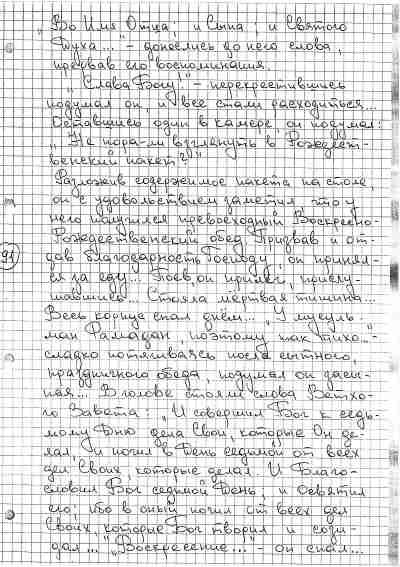 „Во Имя Отца; и Сына; и Святого
Духа..." - донеслись до него слова,
прервав его воспоминания.
„Слава Богу!" - перекрестившись
подумал он, и все стали расходиться...
Оставшись один в камере, он подумал:
„Не пора-ли взглянуть в Рождест-
венский пакет?"
Разложив содержимое пакета на столе,
он с удовольствием заметил что у
него получился превосходный Воскресно-
Рождественский обед. Призвав и от-
дав благодарность Господу, он принял-
ся за еду... Поев, он прилёг, прислу-
шавшись... Стояла мёртвая тишина...
Весь корпус спал днём... „У мусуль-
ман Рамадан, поэтому так тихо..." -
сладко потягиваясь после сытного,
праздничного обеда, подумал он засы-
пая... В голове стояли слова Ветхо-
го Завета: „И совершил Бог к седь-
мому Дню дела Свои, которые Он де-
лал, и почил в День седьмой от всех
дел Своих, которые делал. И Благо-
словил Бог седьмой День, и Освятил
его; ибо в оный почил от всех дел
Своих, которые Бог творил и сози-
дал..." „Воскресение..." - он спал...
91